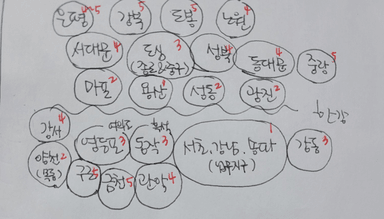 은평 4~5
강북 5
도봉 5
노원 4
서대문 4
도심 3
(종로 중구)
성북 4
동대문 4
중랑 5
마포 2
용산 1
성동 2
광진 2
한강
강서 4
여의도
영등포 3
동작 3
서초, 강남, 송파 1
강동 3
양천 2
(목동)
구로 5
금천 5
관악 4